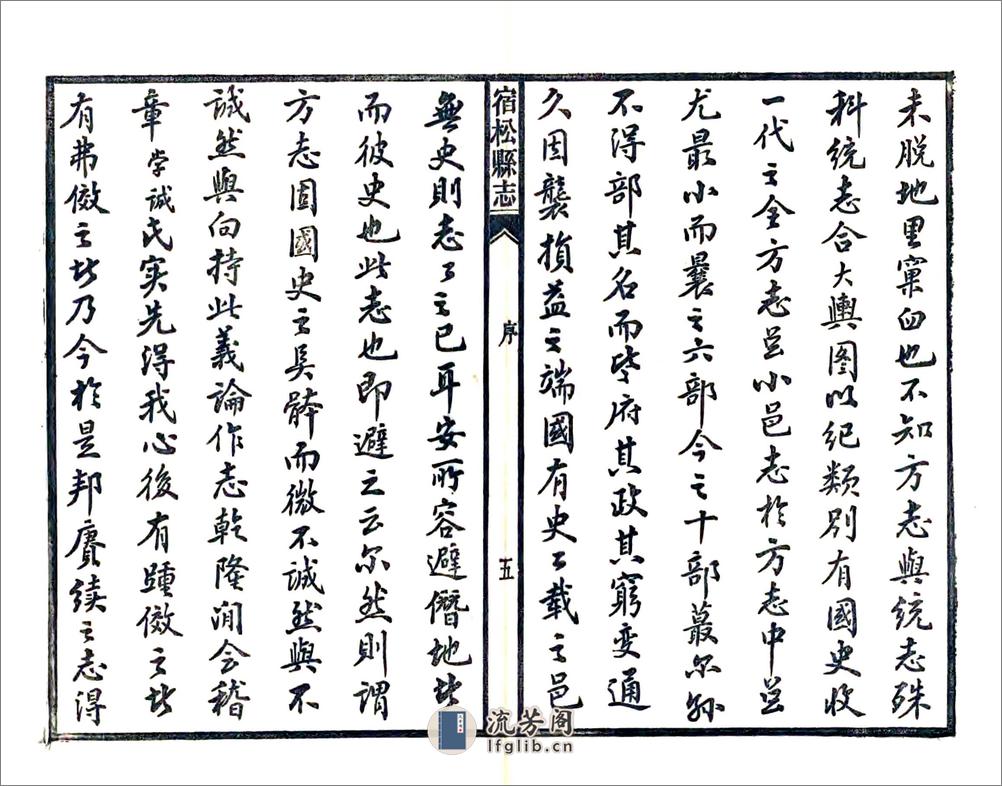 未脱地里窠臼也不知方志與统志殊
科统志合大輿图以纪類别有國史收
一代之全方志小邑志於方志中
尤最小而曩之六部今之十部蕞尔縣
不得部其名而皆府其政其窮变通
久因襲損益之端國有史以載之邑
宿松縣志
序
五
無史則志之已耳安所容避僭地者
而彼史也此志也即避之云尔然則謂
方志固國史之具體而微不誠然與不
誠然與向持此義論作志乾隆间会稽
章学诚氏实先得我心後有踵傚之者
有弗傚之者乃今於是邦賡续之志得
流芳阁
lfglib.cn